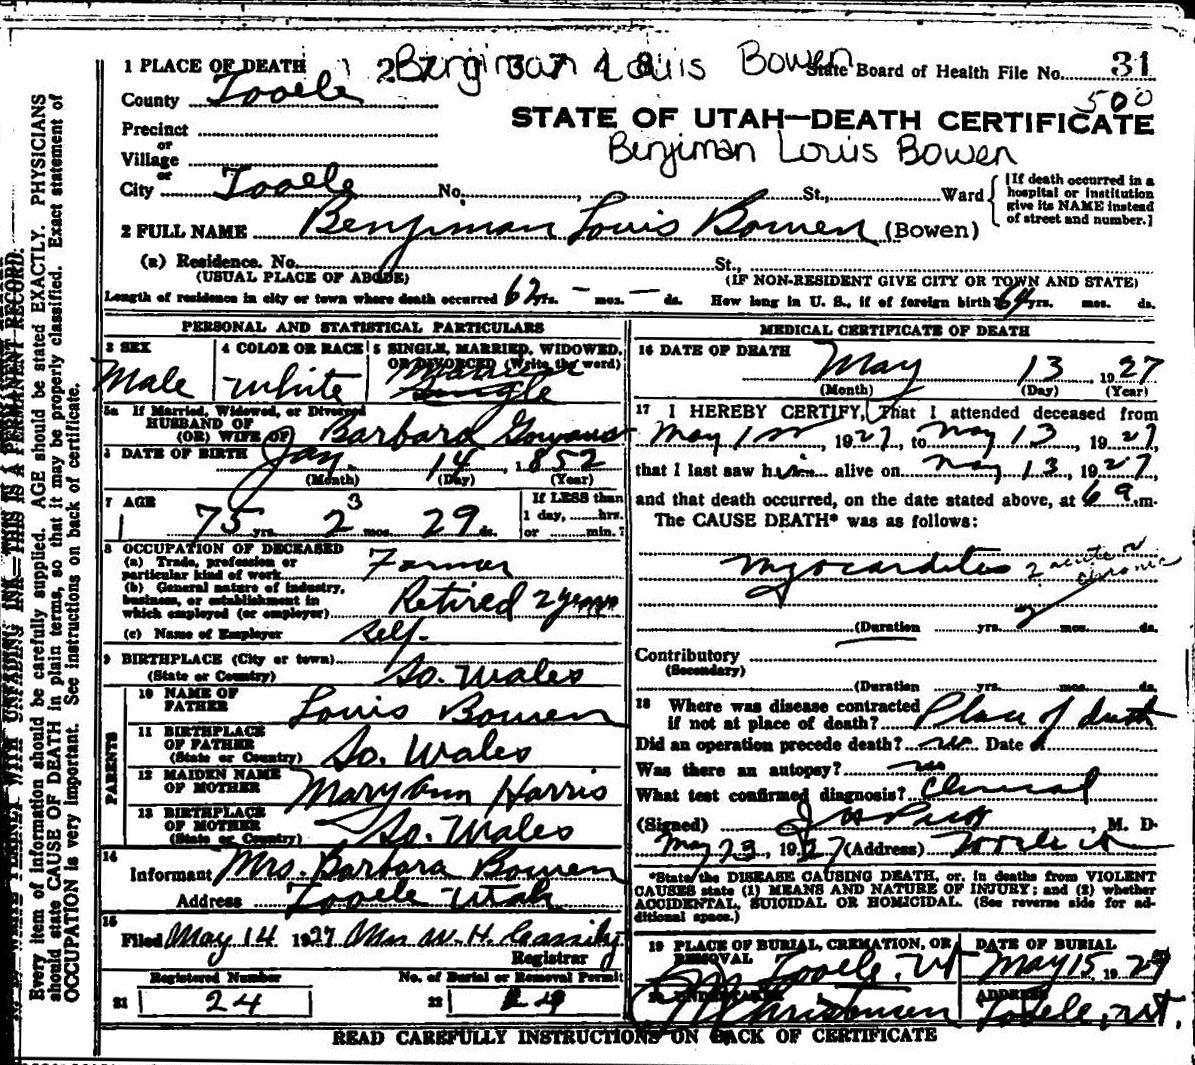 1 PLACE OF DEATH
27 3748
Benjiman Louis Bowen
State Board of Health File No. 31
500
County Tooele
STATE OF UTAH—DEATH CERTIFICATE
Benjiman Louis Bowen
Precinct
or
Village
or
City Tooele No. , St., Ward
[If death occurred in a hospital or institution give its NAME instead of street and number.]
2 FULL NAME Benjiman Louis Bowen (Bowen)
(a) Residence. No. St.,
(USUAL PLACE OF ABODE) (IF NON-RESIDENT GIVE CITY OR TOWN AND STATE)
Length of residence in city or town where death occurred 62 yrs. — mos. — ds. How long in U. S., if of foreign birth? 64 yrs. mos. ds.
PERSONAL AND STATISTICAL PARTICULARS
3 SEX
Male
4 COLOR OR RACE
White
5 SINGLE, MARRIED, WIDOWED, OR DIVORCED (Write the word)
Married
Single
5a If Married, Widowed, or Divorced
HUSBAND OF
(OR) WIFE OF Barbara Gowans
6 DATE OF BIRTH Jan. 14, 1852
(Month) (Day) (Year)
7 AGE
75 yrs. 2 3 mos. 29 ds.
If LESS than
1 day, hrs.
or min.?
8 OCCUPATION OF DECEASED
(a) Trade, profession or
particular kind of work Farmer
(b) General nature of industry,
business, or establishment in
which employed (or employer) Retired 2 years
(c) Name of Employer Self.
9 BIRTHPLACE (City or town)
(State or Country) So. Wales
PARENTS
10 NAME OF
FATHER Louis Bowen
11 BIRTHPLACE
OF FATHER
(State or Country) So. Wales
12 MAIDEN NAME
OF MOTHER Mary Ann Harris
13 BIRTHPLACE
OF MOTHER
(State or Country) So. Wales
14
Informant Mrs. Barbara Bowen
Address Tooele Utah
15
Filed May 14 1927 Mrs W. H. Cassity
Registrar
Registered Number
21 24
No. of Burial or Removal Permit
22 29
MEDICAL CERTIFICATE OF DEATH
16 DATE OF DEATH
May 13, 1927
(Month) (Day) (Year)
17 I HEREBY CERTIFY, That I attended deceased from
May 1, 1927, to May 13, 1927,
that I last saw him alive on May 13, 1927,
and that death occurred, on the date stated above, at 6 a.m.
The CAUSE DEATH* was as follows:
Myocarditis ? acute or chronic
?
(Duration yrs. mos. ds.
Contributory
(Secondary)
(Duration yrs. mos. ds.
18 Where was disease contracted
if not at place of death? Place of death
Did an operation precede death? no Date
Was there an autopsy? no
What test confirmed diagnosis? Clinical
(Signed) , M. D.
May 23, 1927 (Address) Tooele
*State the DISEASE CAUSING DEATH, or, in deaths from VIOLENT
CAUSES state (1) MEANS AND NATURE OF INJURY; and (2) whether
ACCIDENTAL, SUICIDAL OR HOMICIDAL. (See reverse side for ad-
ditional space.)
19 PLACE OF BURIAL, CREMATION, OR
REMOVAL
Tooele, Ut
DATE OF BURIAL
May 15, 1927
20 UNDERTAKER
Christensen
ADDRESS
Tooele, Ut.
READ CAREFULLY INSTRUCTIONS ON BACK OF CERTIFICATE
WRITE PLAINLY WITH UNFADING INK—THIS IS A PERMANENT RECORD.
Every item of information should be carefully supplied. AGE should be stated EXACTLY. PHYSICIANS
should state CAUSE OF DEATH in plain terms, so that it may be properly classified. Exact statement of
OCCUPATION is very important. See instructions on back of certificate.